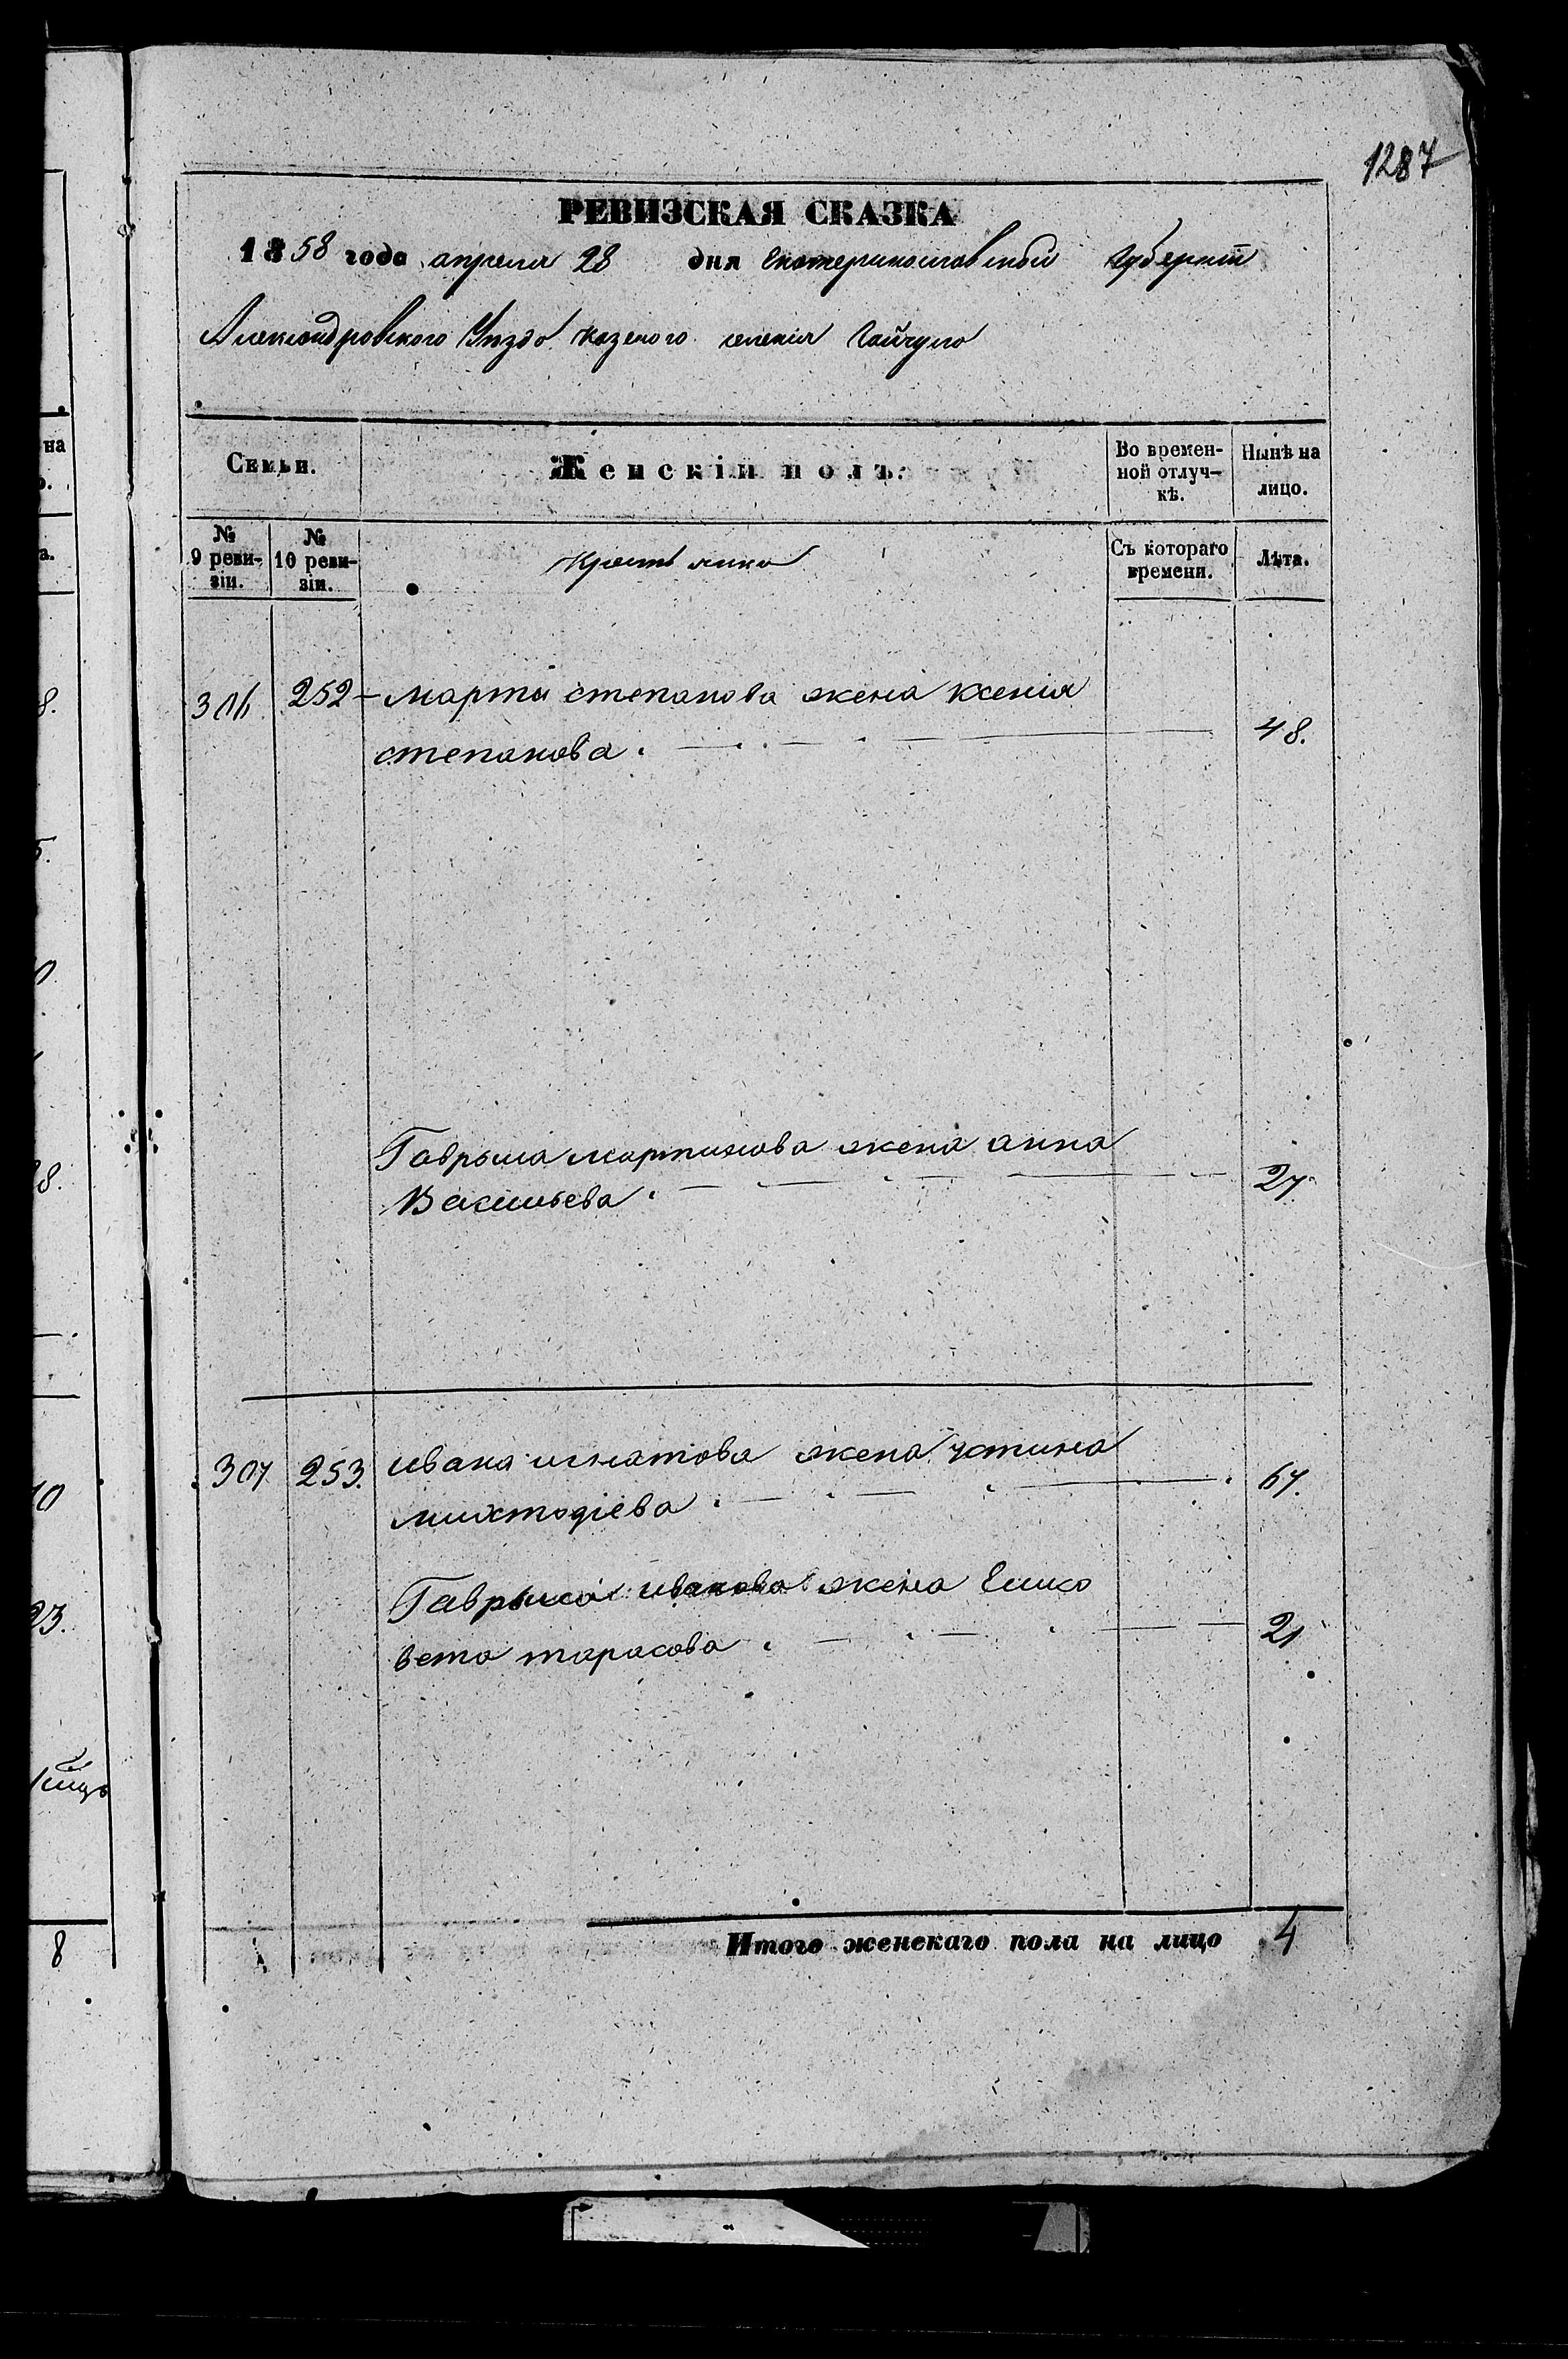 1287
РЕВИЗСКАЯ СКАЗКА
1858 года апреля 28 дня Екатеринославской Губернiи
Александровского Уезда казеного селенiя Гайчула
Семьи.
Женскiй полъ.
Во времен-
ной отлуч-
кѣ.
Нынѣ на
лицо.
№
9 реви-
зiи.
№
10 реви-
зiи.
Крестьянка
Съ котораго
времени.
Лѣта.
306 252 Марти степанова жена ксенiя
степанова 48.
Гаврыла мартинова жена анна
Васильева 27.
307 253. ивана игнатова жена устина
михтодiева 67.
Гаврыла иванова жена Елиса
вета тарасова 21
Итого женскаго пола на лицо 4
на
а.
8.
5.
0
8.
10
23.
8